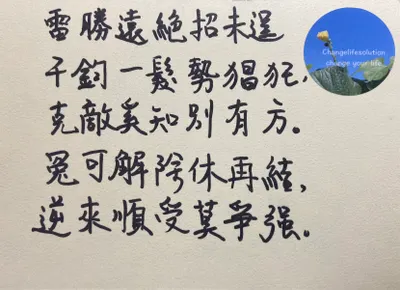 雷勝遠絕招未逞
千鈞一髮勢猖狂,
克敵奚知別有方。
冤可解除休再結,
逆來順受莫爭强。
Changelifesolution
change your life